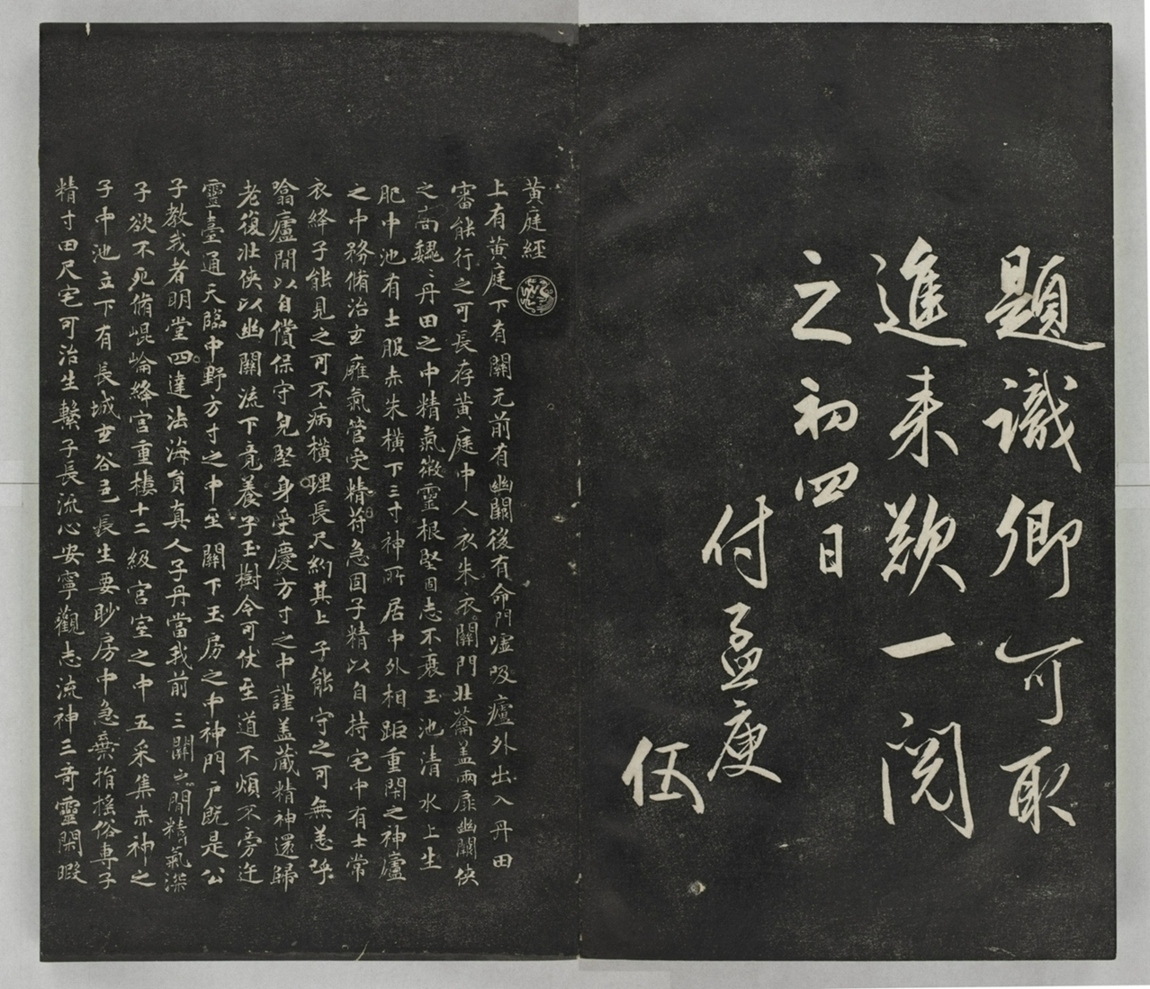 題識卿可取
進来欲一閲
之初四日
付孟庚
伍
黄庭經
上有黄庭下有關元前有幽闕後有命門噓吸廬外出入丹田
審能行之可長存黄庭中人衣朱衣關門壯蘥蓋兩扉幽闕俠
之高巍丶丹田之中精氣微靈根堅固志不衰玉池清水上生
肥中池有士服赤朱橫下三寸神所居中外相距重閇之神廬
之中務脩治玄癕氣管受精符急固子精以自持宅中有士常
衣絳子能見之可不病橫理長尺約其上子能守之可無恙呼
噏廬間以自償保守皃堅身受慶方寸之中謹盖藏精神還歸
老復壯俠以幽闕流下竟養子玉樹令可仗至道不煩不旁迕
靈臺通天臨中野方寸之中至關下玉房之中神門戶既是公
子教我者明堂四達法海負真人子丹當我前三關之間精氣深
子欲不死脩崐崘絳宮重樓十二級宮室之中五采集赤神之
子中池立下有長城玄谷邑長生要眇房中急棄捐搖俗專子
精寸田尺宅可治生繫子長流心安寧觀志流神三奇靈閑暇